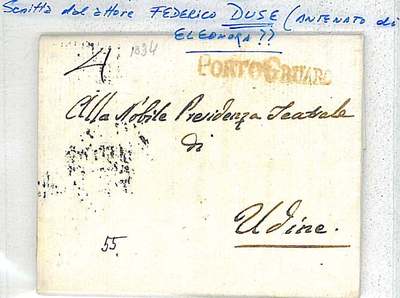 Scritta dal attore FEDERICO DUSE (ANTENATO di
ELEONORA ??
1834
PORTOGRUARO
Alla Nobile Presidenza Teatrale
di
Udine.
55